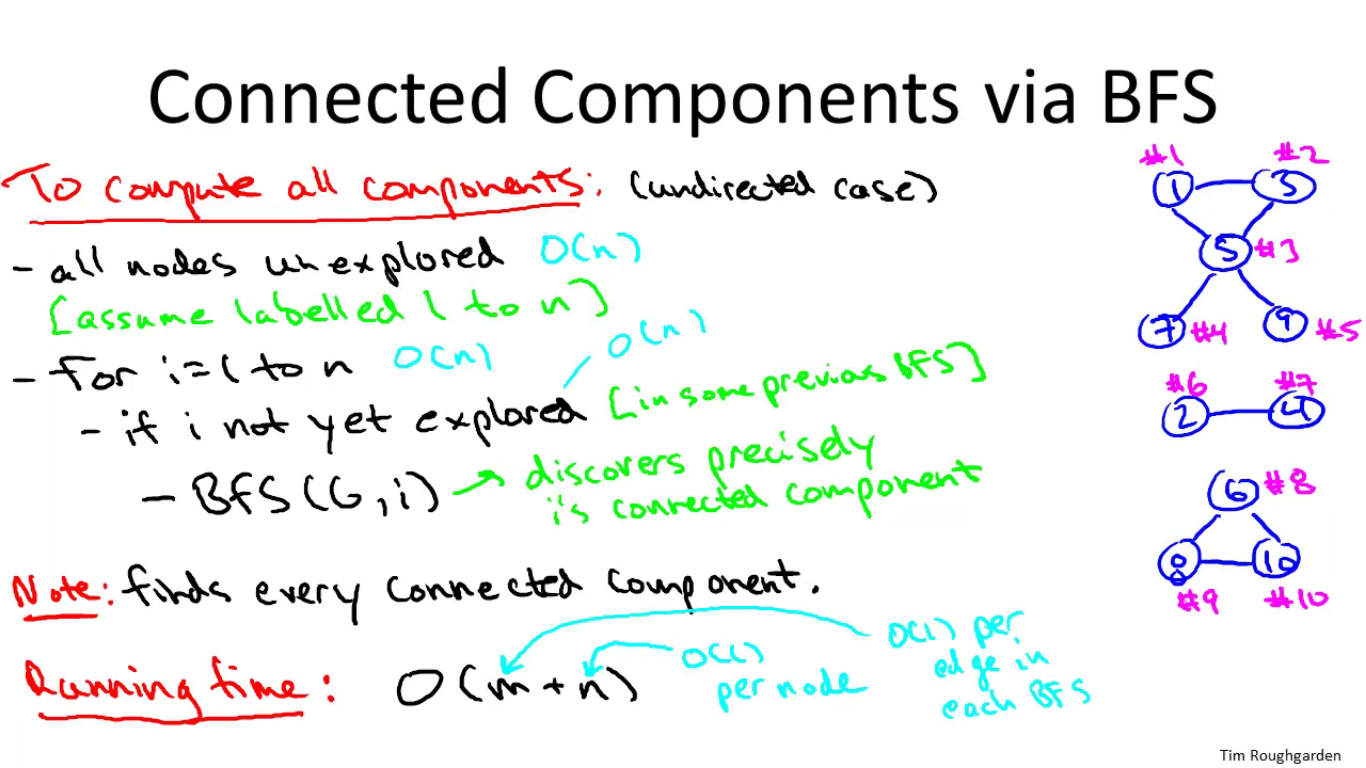 Connected Components via BFS
To compute all components: (undirected case)
- all nodes unexplored O(n)
[assume labelled 1 to n]
- for i=1 to n O(n)
O(n)
- if i not yet explored [in some previous BFS]
- BFS(G,i) → discovers precisely
i's connected component
Note: finds every connected component.
Running time: O(m+n)
O(1)
per node
O(1) per
edge in
each BFS
#1 #2
1 3
5 #3
7 #4 9 #5
#6 #7
2 4
6 #8
8 10
#9 #10
Tim Roughgarden